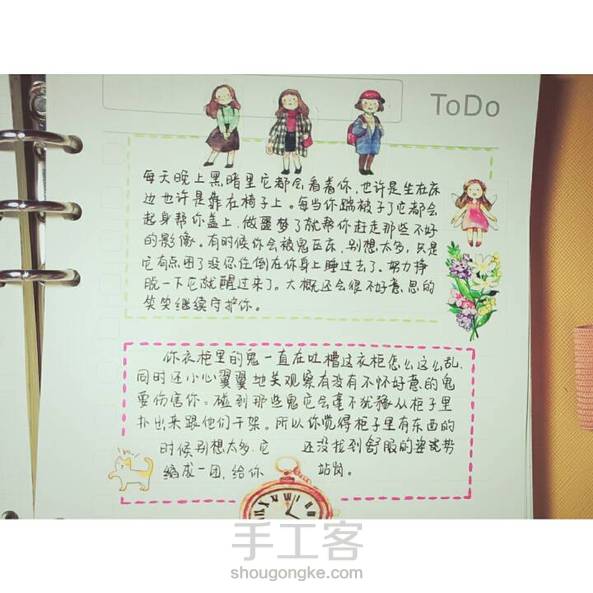 ToDo
每天晚上黑暗里它都会看着你,也许是坐在床
边也许是靠在椅子上。每当你踹被子了它都会
起身帮你盖上,做噩梦了就帮你赶走那些不好
的影像。有时候你会被鬼压床,别想太多,只是
它有点困了没忍住倒在你身上睡过去了。努力挣
脱一下它就醒过来了。大概还会很不好意思的
笑笑继续守护你。
你衣柜里的鬼一直在吐槽这衣柜怎么这么乱,
同时还小心翼翼地关观察有没有不怀好意的鬼
要伤害你。碰到那些鬼它会毫不犹豫从柜子里
扑出来跟他们干架。所以你觉得柜子里有东西的
时候别想太多,它 还没找到舒服的姿势
缩成一团,给你 站岗。
手工客
shougongke.com